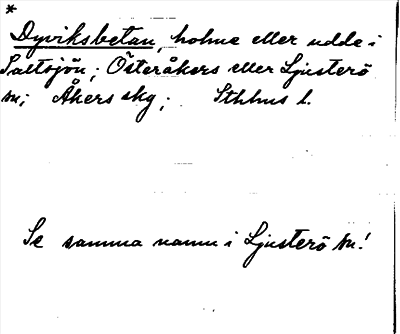 *
Dyviksbetan, holme eller udde i
Saltsjön; Österåkers eller Ljusterö
sn; Åkers skg; Sthlms l.
Se samma namn i Ljusterö sn!